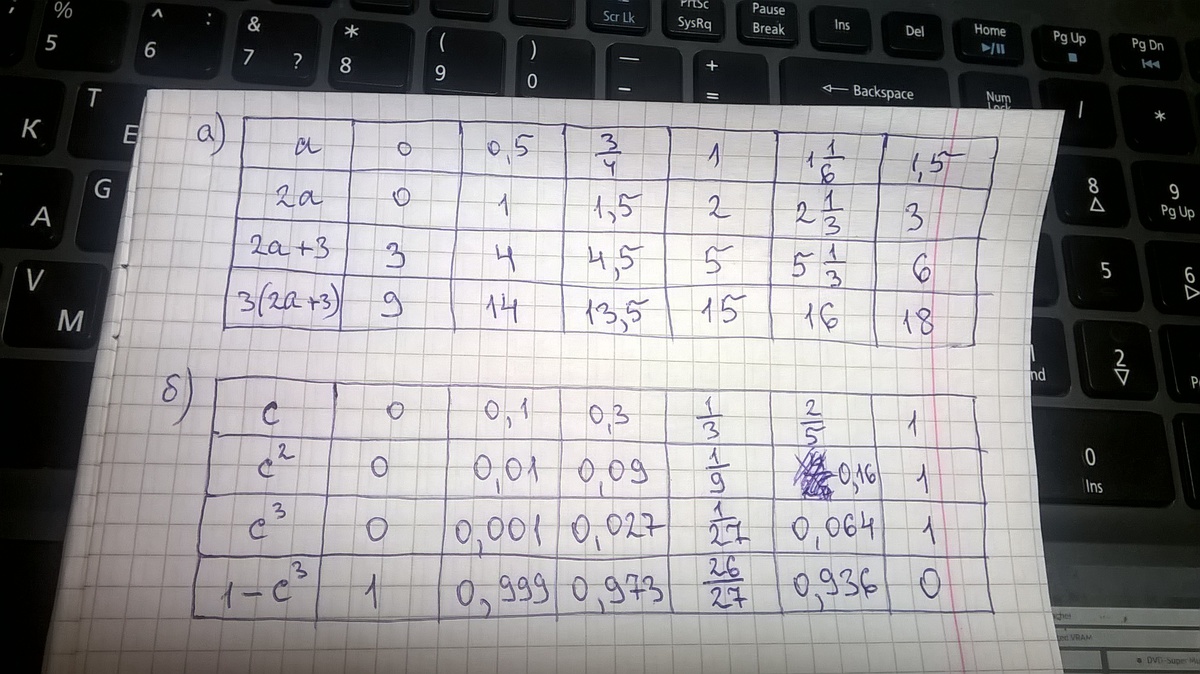 % 5
^ : 6
& 7 ?
* 8
( 9
) 0
— -
+ =
Scr Lk
PrtSc SysRq
Pause Break
Ins
Del
Home
Pg Up
Pg Dn
← Backspace
Num Lock
/
*
К
Т
Е
G
А
V
М
8
9 Pg Up
5
6
2
0 Ins
а)
a 0 0,5 3/4 1 1 1/6 1,5
2a 0 1 1,5 2 2 1/3 3
2a+3 3 4 4,5 5 5 1/3 6
3(2a+3) 9 14 13,5 15 16 18
б)
c 0 0,1 0,3 1/3 2/5 1
c² 0 0,01 0,09 1/9 0,16 1
c³ 0 0,001 0,027 1/27 0,064 1
1-c³ 1 0,999 0,973 26/27 0,936 0
VRAM
DVD-Super